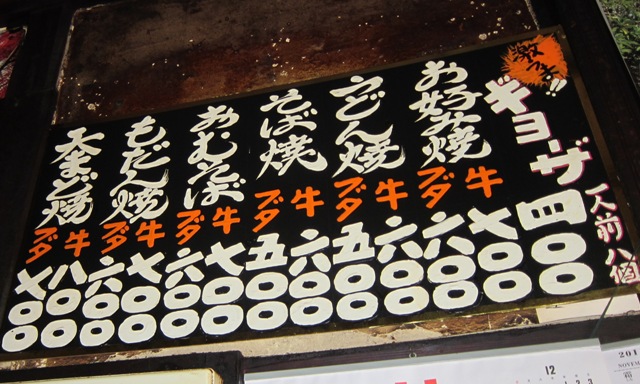 激うま!!
ギョーザ 四〇〇
一人前 八個
お好み焼
牛 七〇〇
ブタ 六〇〇
うどん焼
牛 六〇〇
ブタ 五〇〇
そば焼
牛 六〇〇
ブタ 五〇〇
おむそば
牛 七〇〇
ブタ 六〇〇
もだん焼
牛 七〇〇
ブタ 六〇〇
牛 八〇〇
ブタ 七〇〇
12